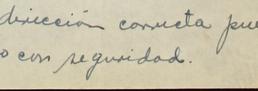 dirección correcta pue
o con seguridad.